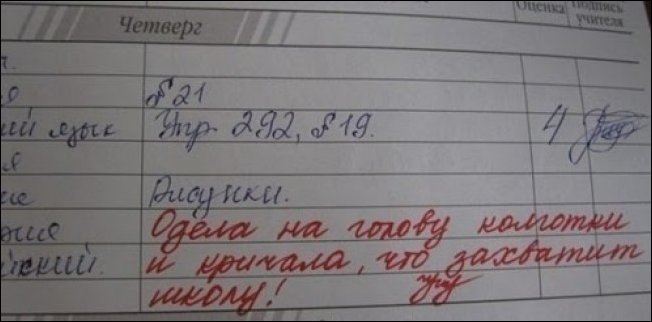 Оценка Подпись учителя
Четверг
§ 21
ий язык Упр. 292, § 19. 4
Рисунки.
Одела на голову колготки
йский. и кричала, что захватит
школу!